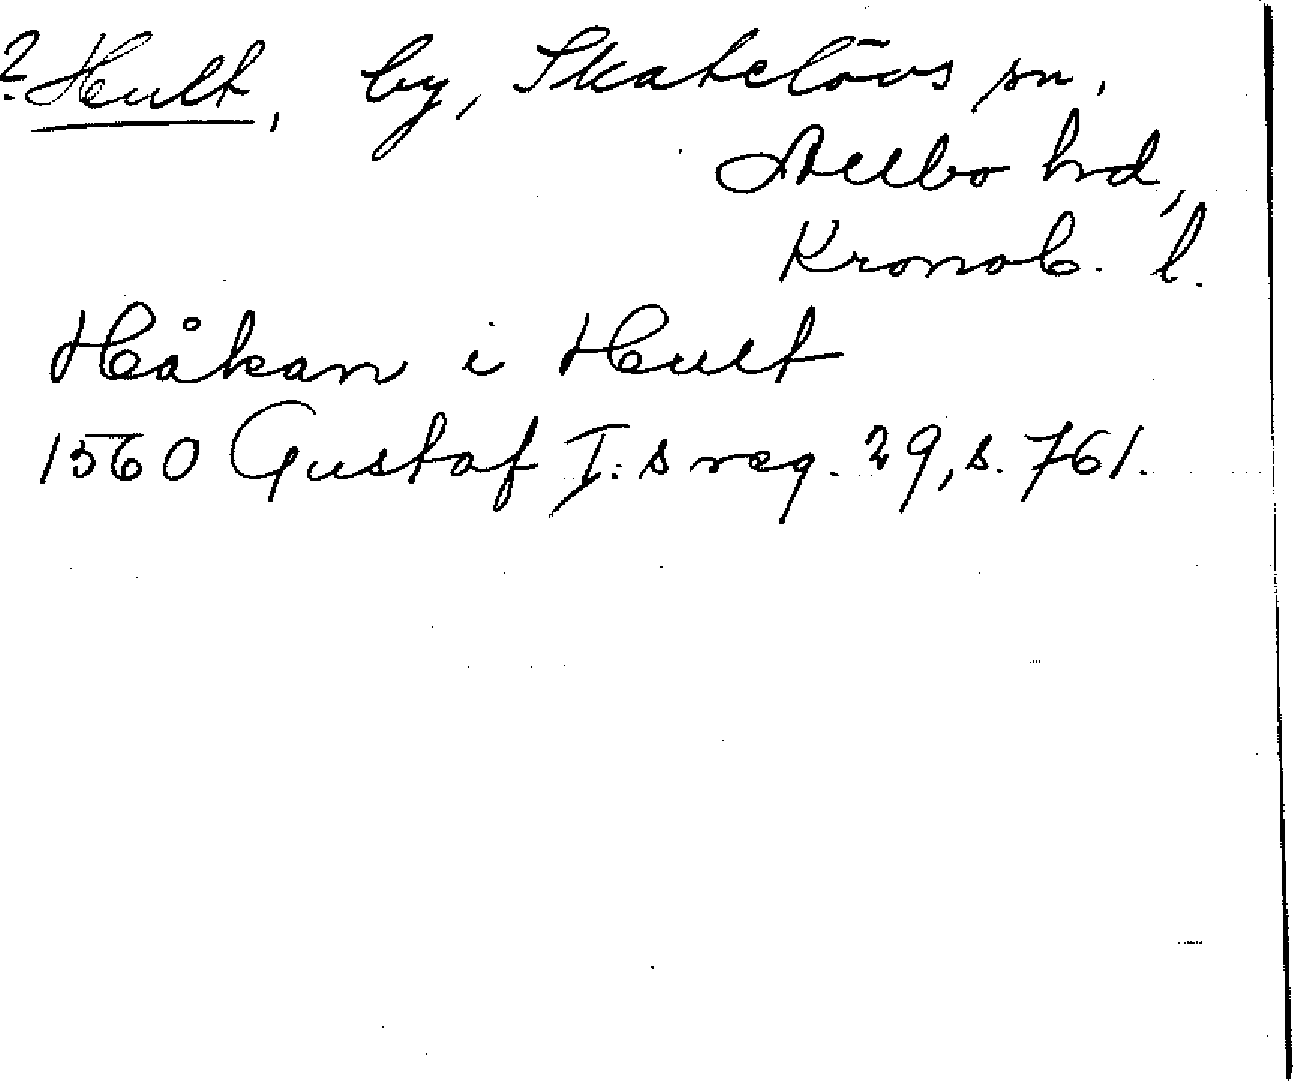 ? Hult, by, Skatelövs sn,
Allbo hrd,
Kronob. l.
Håkan i Hult
1560 Gustaf I:s reg. 29, s. 761.